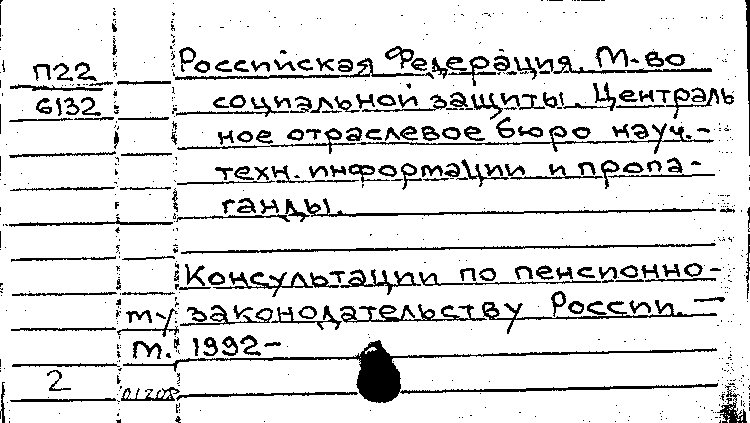 П22 Российская Федерация. М-во
6132 социальной защиты. Централь
ное отраслевое бюро науч.-
техн. информации и пропа-
ганды.
Консультации по пенсионно-
ту законодательству России. —
м. 1992-
2